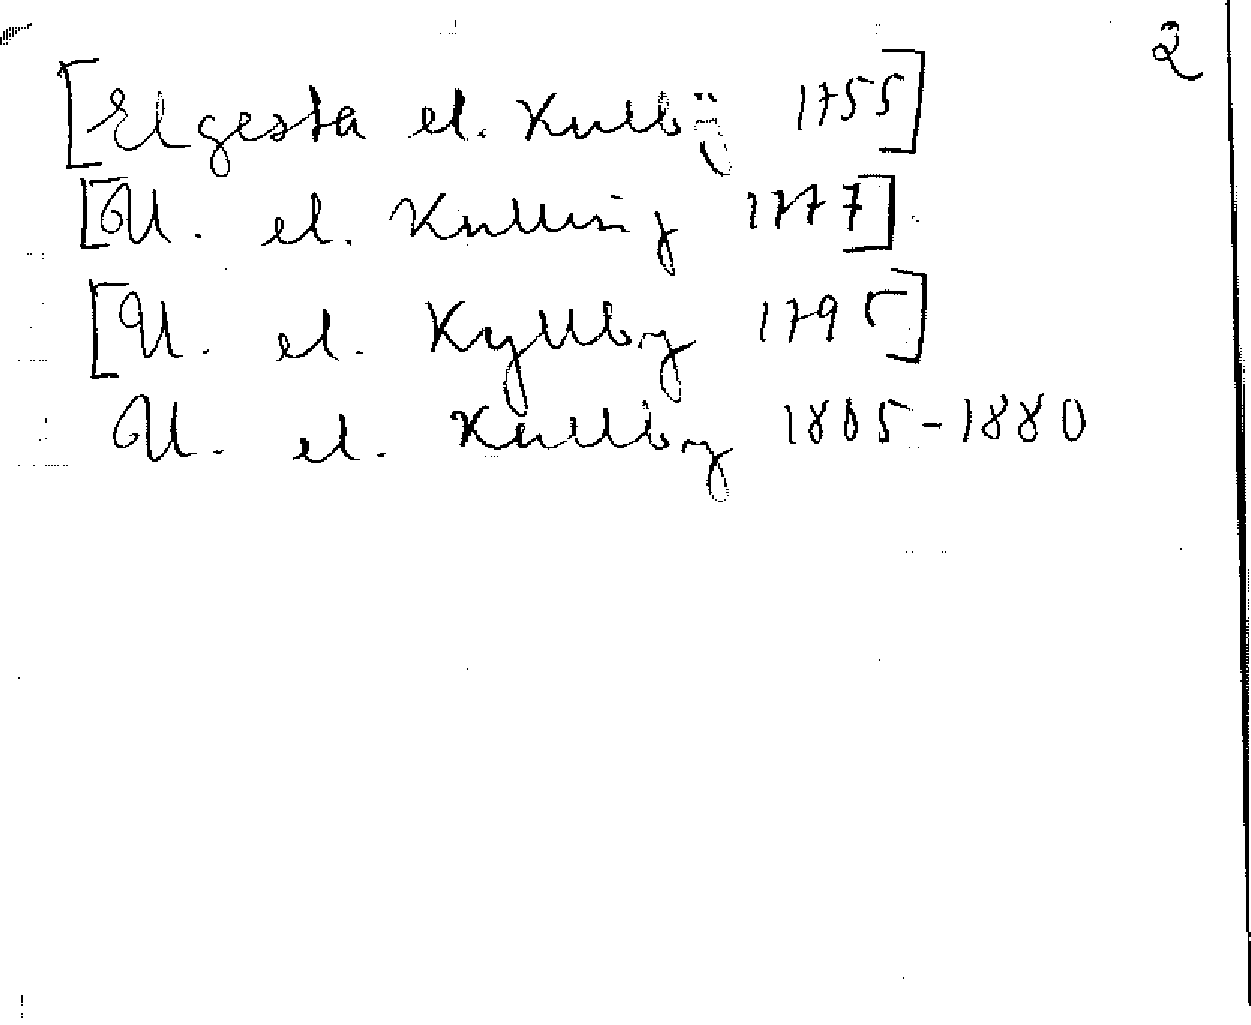 2
[Elgesta el. Kulbÿ 1755]
[U. el. 1777].
[U. el. Kyllby 1795]
U. el. Kullby 1805-1880